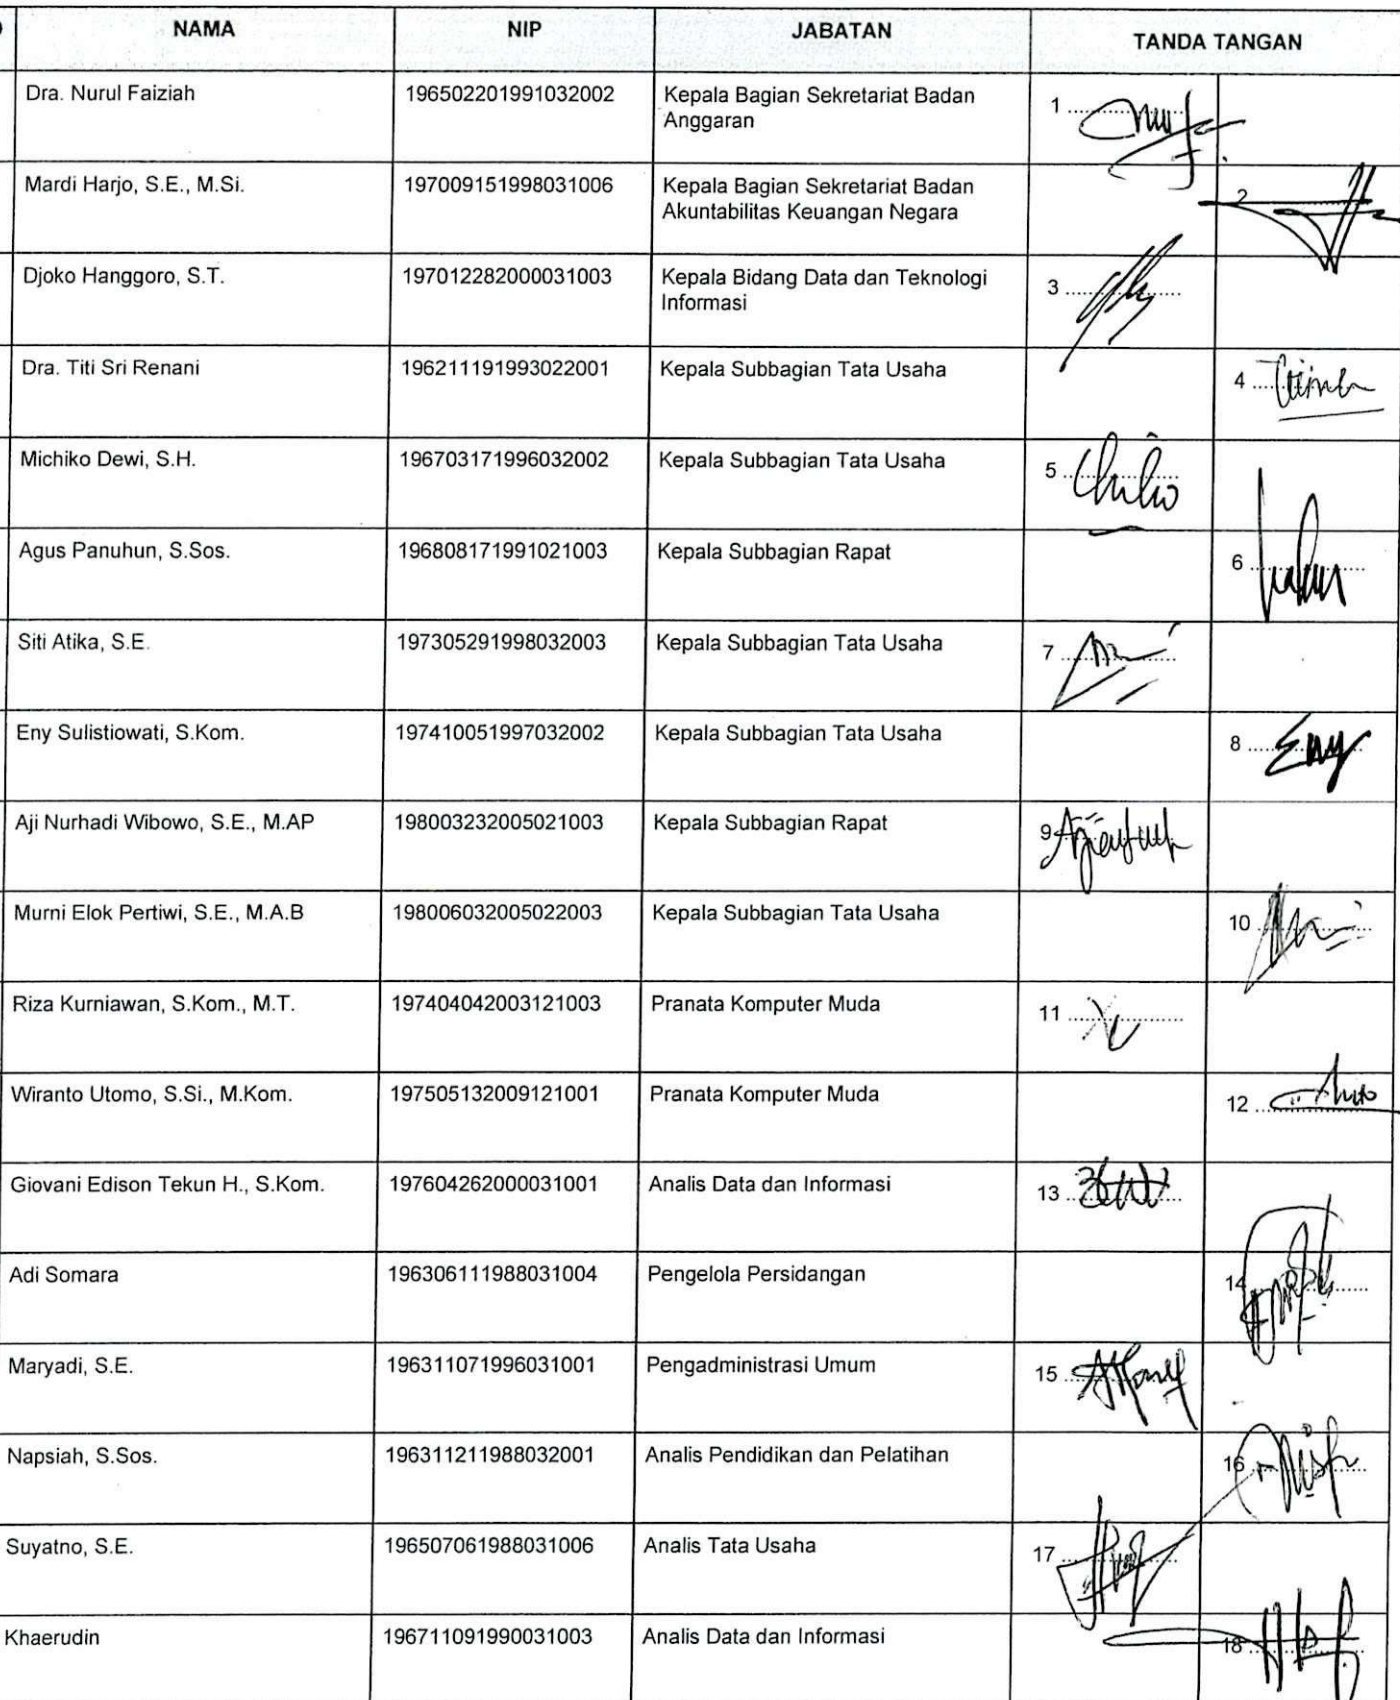 NAMA NIP JABATAN TANDA TANGAN
Dra. Nurul Faiziah 196502201991032002 Kepala Bagian Sekretariat Badan 1
Anggaran
Mardi Harjo, S.E., M.Si. 197009151998031006 Kepala Bagian Sekretariat Badan 2
Akuntabilitas Keuangan Negara
Djoko Hanggoro, S.T. 197012282000031003 Kepala Bidang Data dan Teknologi 3
Informasi
Dra. Titi Sri Renani 196211191993022001 Kepala Subbagian Tata Usaha 4
Michiko Dewi, S.H. 196703171996032002 Kepala Subbagian Tata Usaha 5
Agus Panuhun, S.Sos. 196808171991021003 Kepala Subbagian Rapat 6
Siti Atika, S.E. 197305291998032003 Kepala Subbagian Tata Usaha 7
Eny Sulistiowati, S.Kom. 197410051997032002 Kepala Subbagian Tata Usaha 8 Eny
Aji Nurhadi Wibowo, S.E., M.AP 198003232005021003 Kepala Subbagian Rapat 9
Murni Elok Pertiwi, S.E., M.A.B 198006032005022003 Kepala Subbagian Tata Usaha 10
Riza Kurniawan, S.Kom., M.T. 197404042003121003 Pranata Komputer Muda 11
Wiranto Utomo, S.Si., M.Kom. 197505132009121001 Pranata Komputer Muda 12
Giovani Edison Tekun H., S.Kom. 197604262000031001 Analis Data dan Informasi 13
Adi Somara 196306111988031004 Pengelola Persidangan 14
Maryadi, S.E. 196311071996031001 Pengadministrasi Umum 15
Napsiah, S.Sos. 196311211988032001 Analis Pendidikan dan Pelatihan 16
Suyatno, S.E. 196507061988031006 Analis Tata Usaha 17
Khaerudin 196711091990031003 Analis Data dan Informasi 18